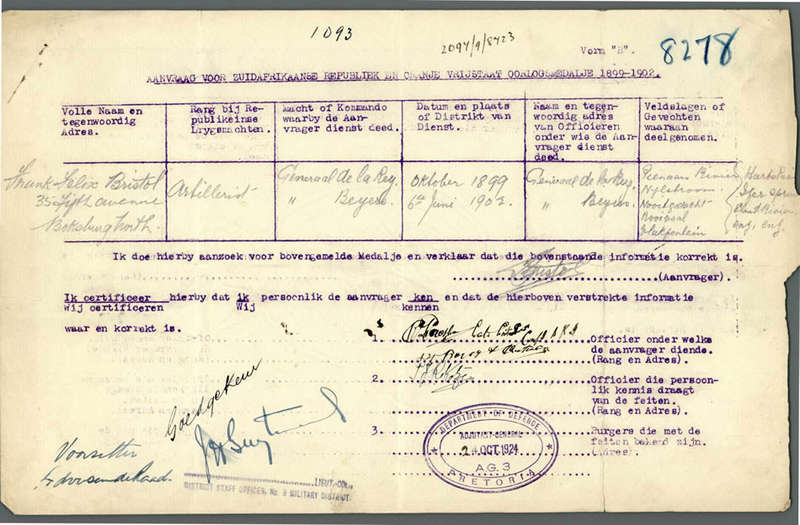 1093
2094/9/8423
Vorm "B".
8278
AANVRAAG VOOR ZUIDAFRIKAANSE REPUBLIEK EN ORANJE VRIJSTAAT OORLOGSMEDALJE 1899-1902.
Volle Naam en tegenwoordig Adres.
Rang bij Republikeinse Krygsmachten.
Macht of Kommando waarby de Aanvrager dienst deed.
Datum en plaats of Distrikt van Dienst.
Naam en tegenwoordig adres van Officieren onder wie de Aanvrager dienst deed.
Veldslagen of Gevechten waaraan deelgenomen.
Frank Felix Bristol
35 Fifth avenue
Boksburg North.
Artillerist
Generaal de la Rey
" Beyers
Oktober 1899
6de Juni 1902.
Generaal de la Rey
" Beyers.
Pienaars Rivier
Nylstroom
Nooitgedacht
Vlakfontein
Ik doe hierby aanzoek voor bovengemelde Medalje en verklaar dat die bovenstaande informatie korrekt is.
Bristol
(Aanvrager).
Ik certificeer hierby dat ik persoonlik de aanvrager ken en dat de hierboven verstrekte informatie
Wij certificeren Wij kennen
waar en korrekt is.
1. Officier onder welke de aanvrager diende. (Rang en Adres).
2. Officier die persoonlik kennis draagt van de feiten. (Rang en Adres).
3. Burgers die met de feiten bekend zijn. (Adres).
Goedgekeur
Voorsitter
Adviserende Raad.
LIEUT-COL.,
DISTRICT STAFF OFFICER, No. 8 MILITARY DISTRICT.
DEPARTMENT OF DEFENCE
ADJUTANT-GENERAL
24 OCT 1924
A.G.3
PRETORIA